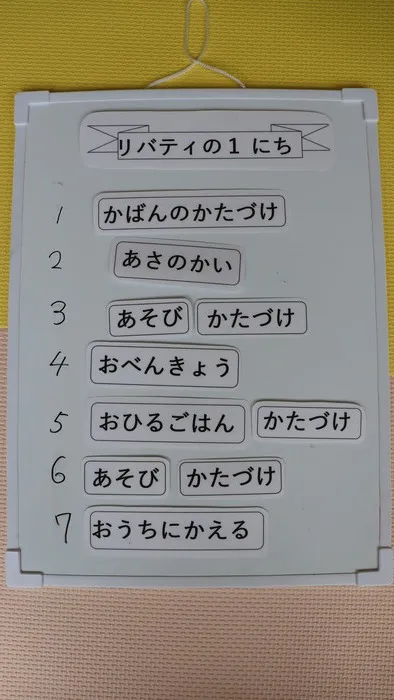 リバティの1にち
1 かばんのかたづけ
2 あさのかい
3 あそび かたづけ
4 おべんきょう
5 おひるごはん かたづけ
6 あそび かたづけ
7 おうちにかえる